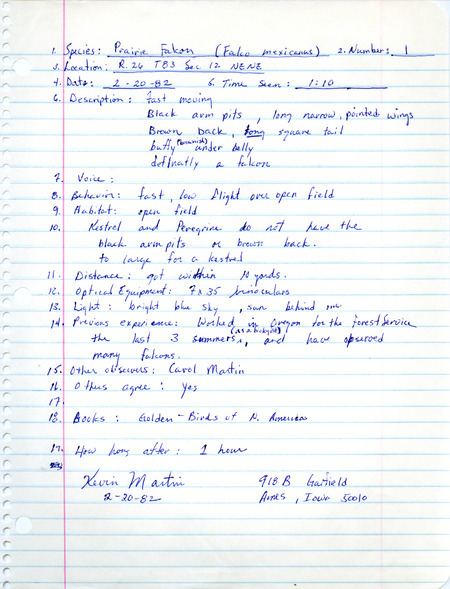 1. Species: Prairie Falcon (Falco mexicanus) 2. Number: 1
3. Location: R. 26 T83 Sec 12 NENE
4. Date: 2-20-82 5. Time Seen: 1:10
6. Description: fast moving
Black arm pits, long narrow, pointed wings
Brown back, long square tail
buffy (brownish) under belly
definatly a falcon
7. Voice:
8. Behavior: fast, low flight over open field
9. Habitat: open field
10. Kestrel and Peregrine do not have the
black armpits or brown back.
to large for a kestrel
11. Distance: got within 10 yards.
12. Optical Equipment: 7x35 binoculars
13. Light: bright blue sky, sun behind me
14. Previous experience: Worked in Oregon for the Forest Service
the last 3 summers (as a biologist), and have observed
many falcons.
15. Other observers: Carol Martin
16. Others agree: yes
17.
18. Books: Golden - Birds of N. America
19. How long after: 1 hour
Kevin Martin 918 B Garfield
2-20-82 Ames, Iowa 50010